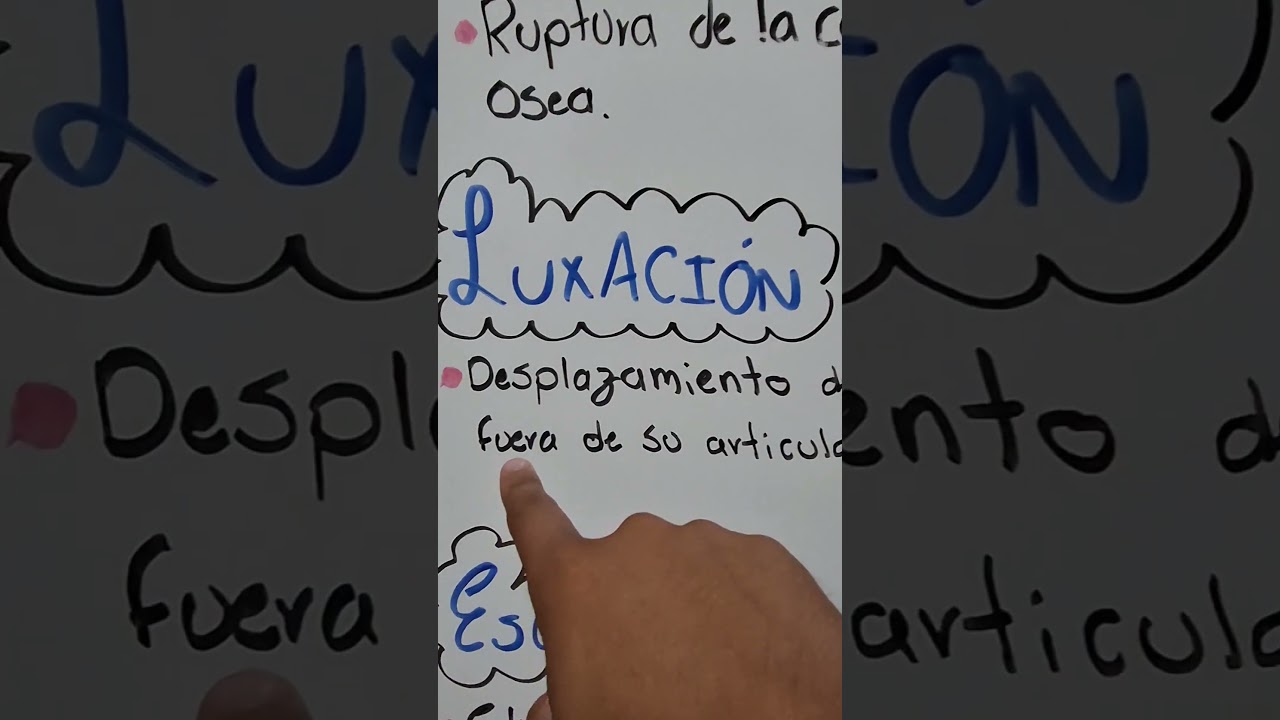 Ruptura de la
osea.
LUXACIÓN
Desplazamiento
fuera de su